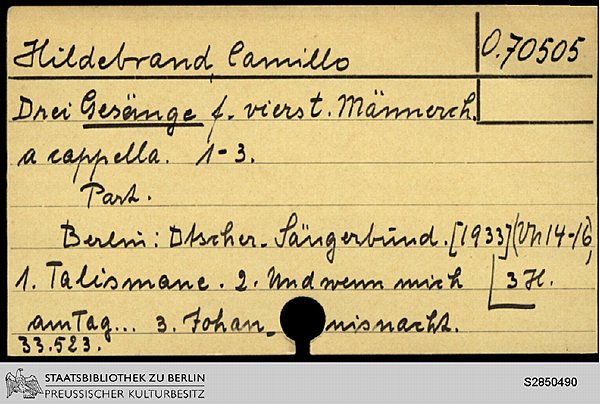 Hildebrand, Camillo
O.70505
Drei Gesänge f. vierst. Männerch.
a cappella. 1-3.
Part.
Berlin: Dtscher. Sängerbund. [1933] (Vn 14-16)
1. Talismane. 2. Und wenn mich
3 H.
am Tag... 3. Johan- nisnacht.
33.523.
STAATSBIBLIOTHEK ZU BERLIN
PREUSSISCHER KULTURBESITZ
S2850490